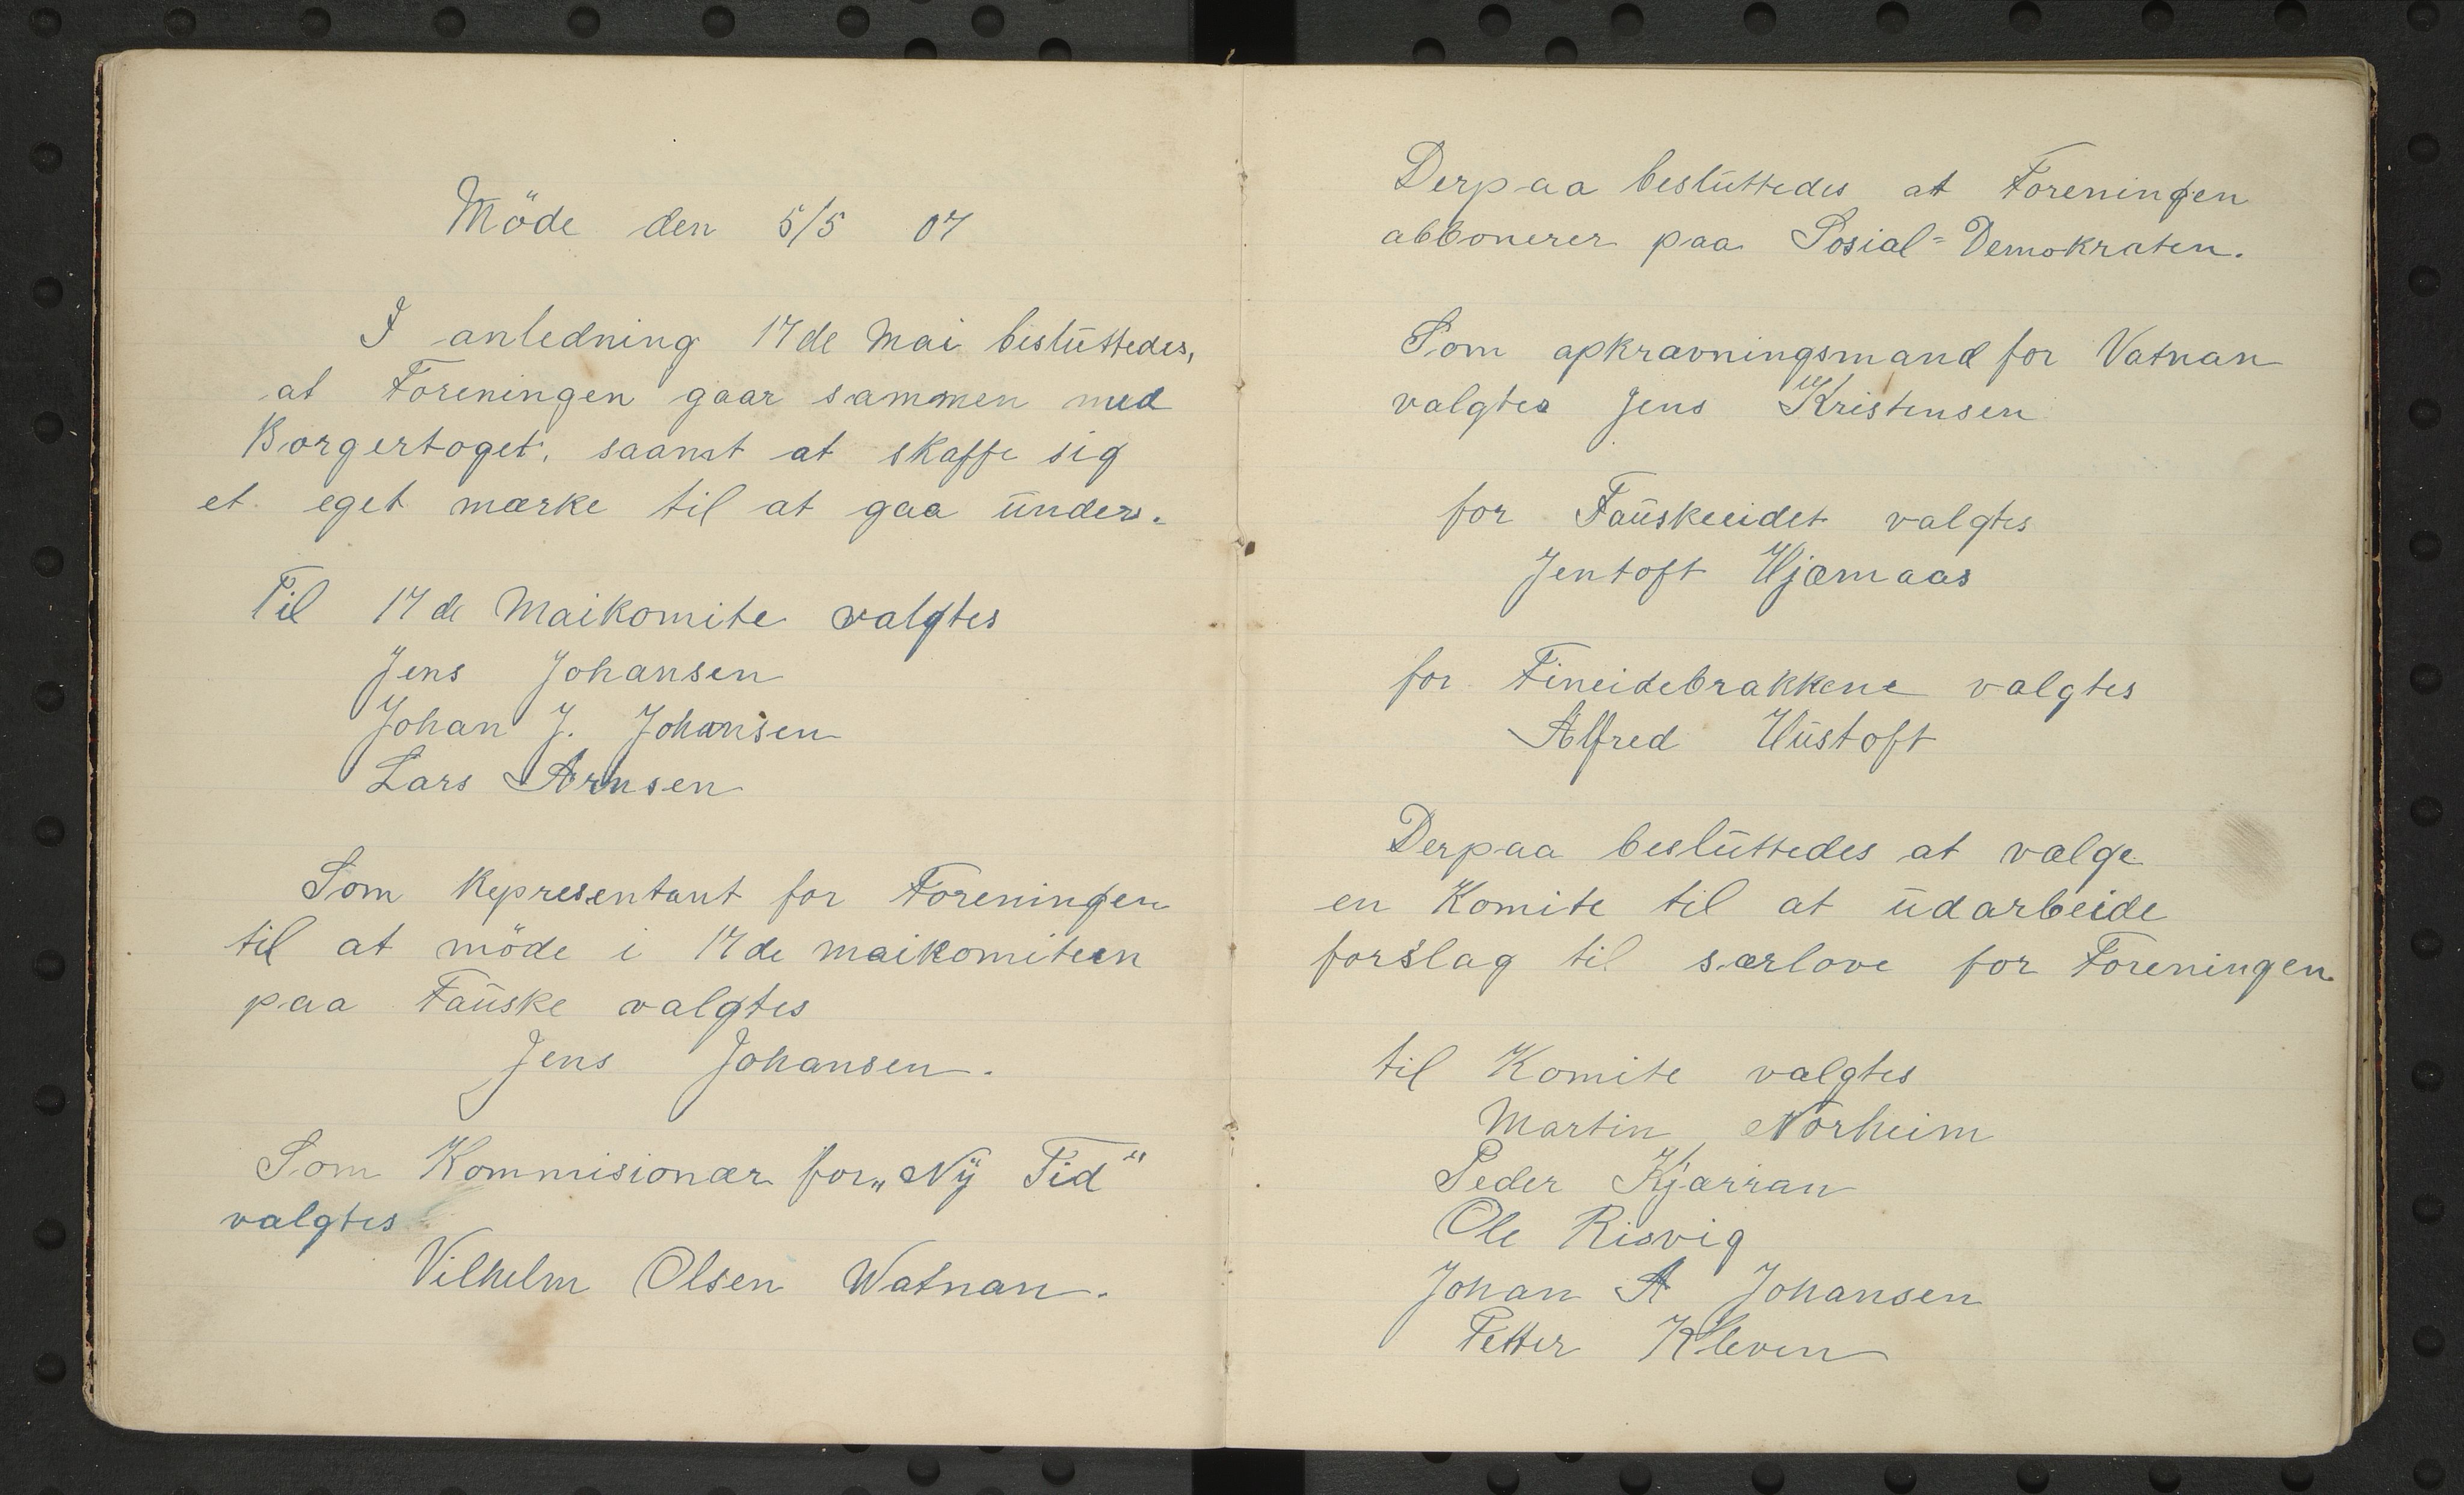 Möde den 5/5 07
I anledning 17de Mai besluttedes,
at Foreningen gaar sammen med
Borgertoget, saamt at skaffe sig
et eget mærke til at gaa under.
Til 17de Maikomite valgtes
Jens Johansen
Johan J. Johansen
Lars Arnsen
Som Representant for Foreningen
til at möde i 17de maikomiteen
paa Fauske valgtes
Jens Johansen.
Som Kommisionær for „Ny Tid"
valgtes
Vilhelm Olsen Watnan.
Derpaa besluttedes at Foreningen
abbonerer paa Sosial=Demokraten.
Som opkrævningsmand for Vatnan
valgtes Jens Kristensen
for Fauskeeidet valgtes
Jentoft Hjemaas
for Fineidebrakkene valgtes
Alfred Hustoft
Derpaa besluttedes at vælge
en Komite til at udarbeide
forslag til særlove for Foreningen
til Komite valgtes
Martin Norheim
Peder Kjærran
Ole Risvig
Johan A Johansen
Petter Kleven